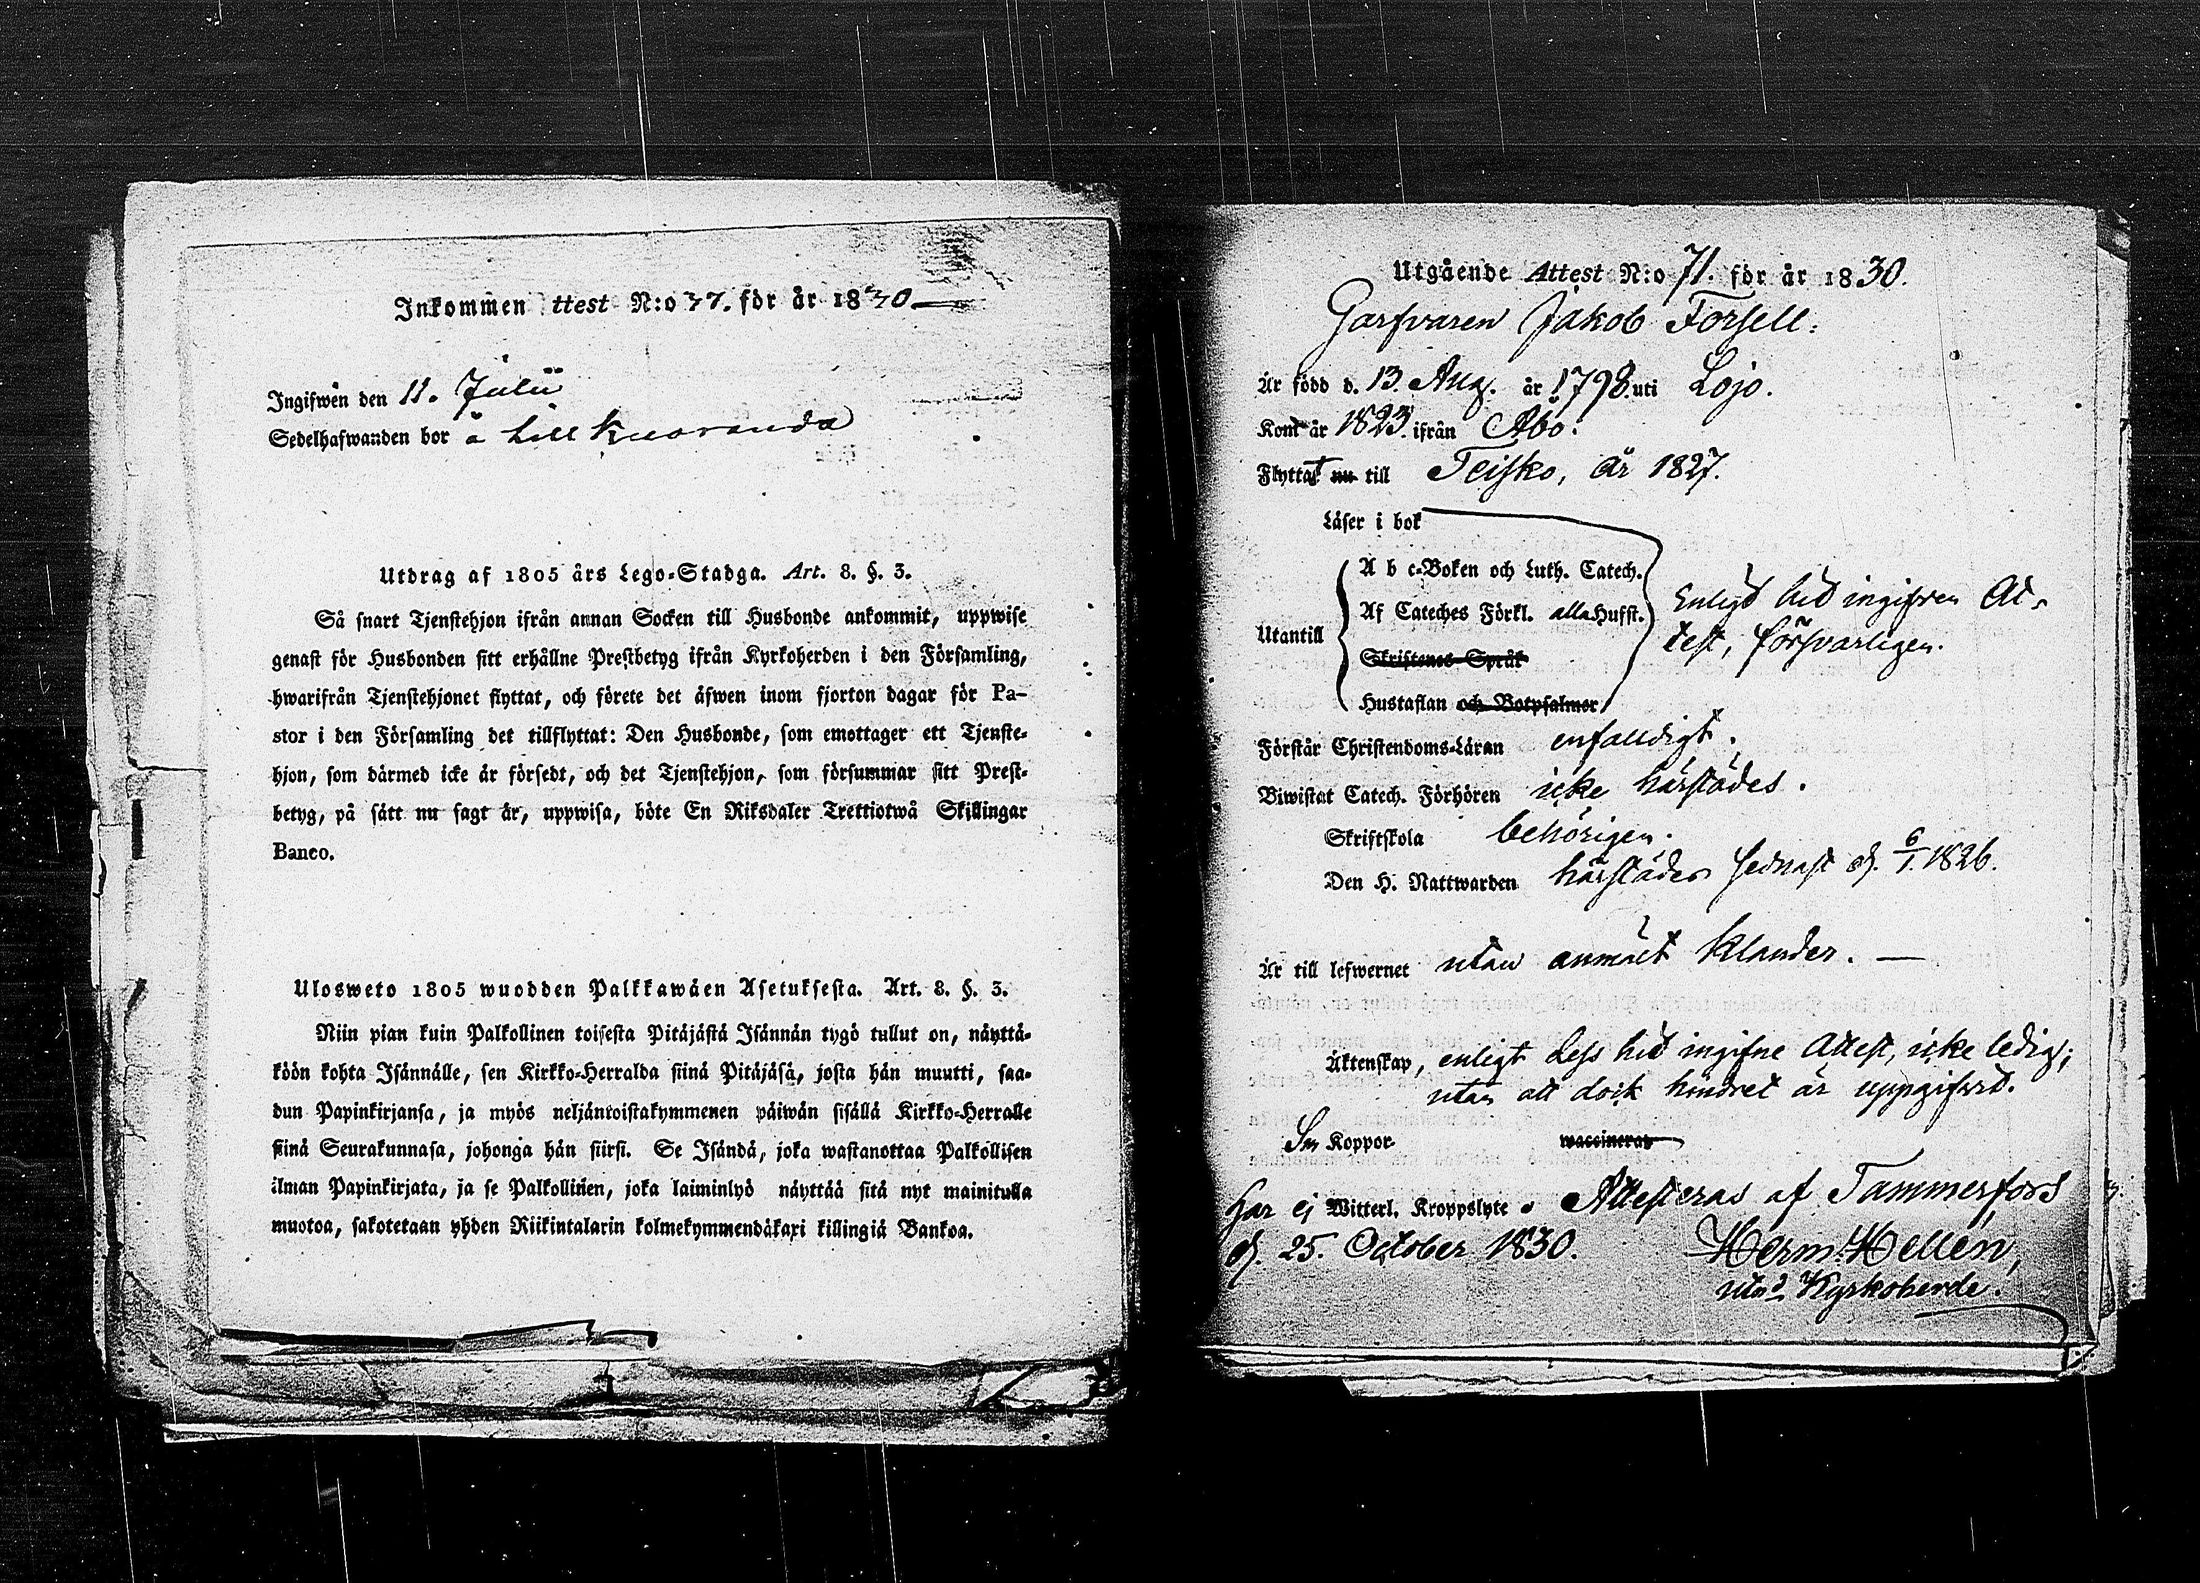 Inkommen ttest N:o 37. för år 1830
Ingifwen den 11. Julii
Sedelhafwanden bor å Lill Knoranda
Utdrag af 1805 års Lego-Stadga. Art. 8. §. 3.
Så snart Tjenstehjon ifrån annan Socken till Husbonde ankommit, uppwise
genast för Husbonden sitt erhållne Prestbetyg ifrån Kyrkoherden i den Församling,
hwarifrån Tjenstehjonet flyttat, och förete det äfwen inom fjorton dagar för Pa-
stor i den Församling det tillflyttat: Den Husbonde, som emottager ett Tjenste-
hjon, som därmed icke är försedt, och det Tjenstehjon, som försummar sitt Prest-
betyg, på sätt nu sagt är, uppwisa, böte En Riksdaler Trettiotwå Skillingar
Banco.
Ulosweto 1805 wuodden Palkkawäen Asetuksesta. Art. 8. §. 3.
Niin pian kuin Palkollinen toisesta Pitäjästä Isännän tygö tullut on, näyttä-
köön kohta Isännälle, sen Kirkko-Herralda siinä Pitäjäsä, josta hän muutti, saa-
dun Papinkirjansa, ja myös neljäntoistakymmenen päiwän sisällä Kirkko-Herralle
siinä Seurakunnasa, johonga hän siirsi. Se Isändä, joka wastanottaa Palkollisen
ilman Papinkirjata, ja se Palkollinen, joka laiminlyö näyttää sitä nyt mainitulla
muotoa, sakotetaan yhden Riikintalarin kolmekymmendäkaxi killingiä Bankoa.
Utgående Attest N:o 71. för år 1830.
Garfvaren Jakob Forsell:
Är född d. 13. Aug. år 1798. uti Lojo.
Kom år 1823. ifrån Åbo.
Flyttat nu till Teisko, år 1827.
Läser i bok
A b c-Boken och Luth. Catech.
Af Cateches Förkl. alla Hufst.
Utantill
Skriftenes Språk
Hustaflan och Botpsalmer
Enligt hit ingifven At-
test, försvarligen.
Förstår Christendoms-Läran enfalldigt.
Biwistat Catech. Förhören icke härstädes.
Skriftskola behörigen.
Den H. Nattwarden härstädes sednast d. 6/1. 1826.
Är till lefwernet utan anmält klander. —
Äktenskap, enligt dess hit ingifne Attest, icke ledig;
utan att dock hindret är uppgifvet.
Koppor waccinerad
Har ej Witterl. Kroppslyte. Attesteras af Tammerfors
d. 25. October 1830. Herm. Hellén,
Kyrkoherde.